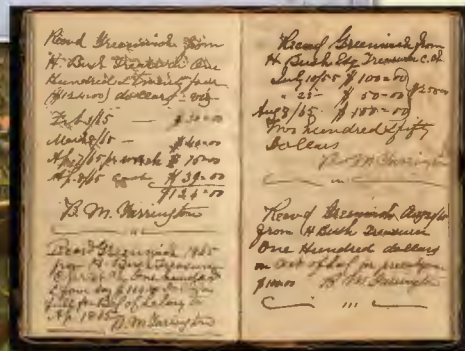 Recvd Greenwich from
H Bush Treasurer One
Hundred & Twenty four
($124.00) dollars
Feb 3/65 — $
Mar 8/65 — $40=00
Ap 7/65 pr work $
Ap 8/65 cash $39=00
$124=00
B. M. Farrington
Recvd Greenwich 1865
from H Bush Treasurer
One hundred
&
full for Bal of Salary to
Ap 1865
B. M. Farrington
Recvd Greenwich from
H Bush Esq Treasurer
July 10/65 $100=00
" 25 - $50=00 $250=00
Aug 8/65 $100=00
Two hundred fifty
Dollars
B. M. Farrington
Recvd Greenwich Aug
from H Bush Treasurer
One Hundred dollars
on act of Sal for
$100.00 B M Farrington